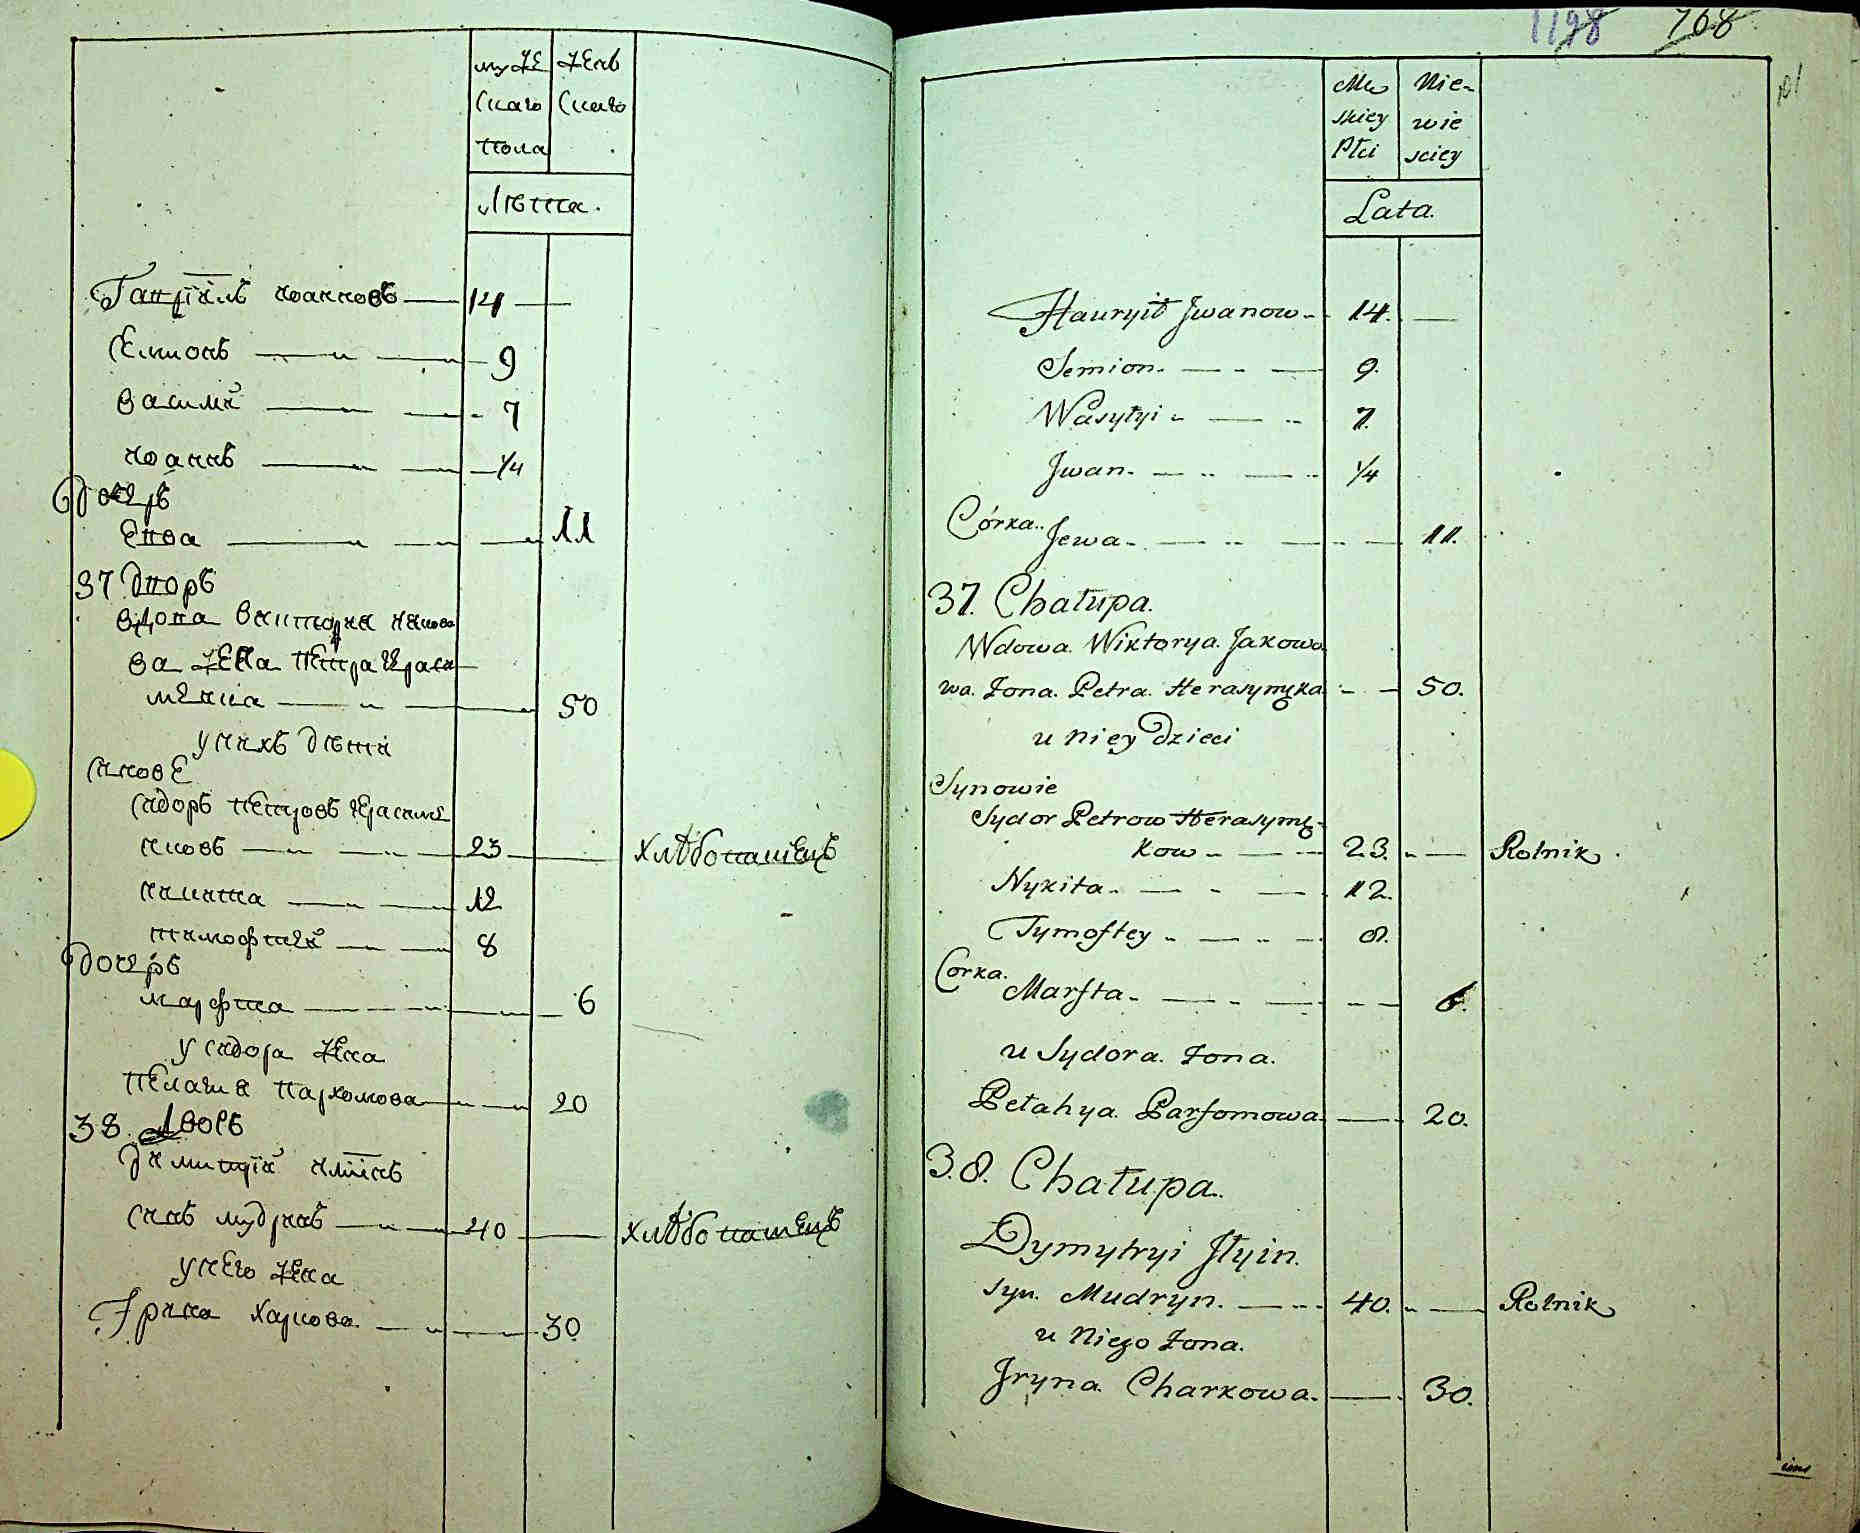 муже
скаго
пола
жен
скаго
Лѣта.
Гавріилъ иоанновъ 14
Симонъ — „ — 9
василій — „ — 7
иоаннъ — „ — 1/4
дочерь
Евва — „ — 11
37 дворъ
вдова виктория иаково
ва жена петра Гераси
менка — „ — 50
у них дѣти
синове
сидоръ петровъ Герасиме
нковъ — „ — 23 — хлѣбопашецъ
никита — „ — 12
тимофтей — „ — 8
дочерь
марфта — 6
у сидора жена
пелагия пархомова — „ — 20
38. дворъ
димитрій илиинъ
синъ мудринъ — „ — 40 — хлѣбопашецъ
у него жена
Ирина харкова — „ — 30
1198 768
Mę
skiey
Płci
Nie-
wie
sciey
Lata.
Hauryił Jwanow — 14. —
Semion. — „ — 9.
Wasyłyi „ — „ 7.
Jwan. — „ — „ 1/4
Córka..
Jewa — „ — 11.
37. Chałupa.
Wdowa. Wiktorya. Jakowo
wa. Żona. Petra. Herasymęka — 50.
u niey Dzieci
Synowie
Sydor Petrow Herasymę-
kow „ — 23. „ — Rolnik
Nykita. — „ — 12.
Tymoftey „ — „ — 8.
Corka.
Marfta — „ — 6.
u Sydora. Żona.
Pełahya. Parfomowa. — 20.
38. Chałupa.
Dymytryi Jłyin.
syn. Mudryn. — „ 40. „ — Rolnik
u Niego Żona.
Jryna. Charkowa. — 30.